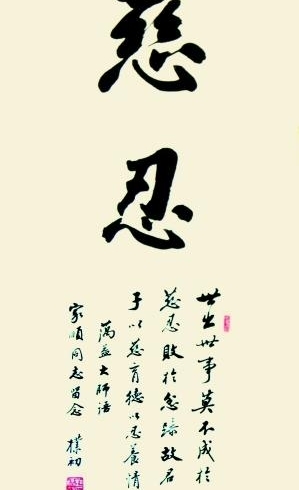 慈
忍
世出世事莫不成於
慈忍敗於忿躁故君
子以慈育德以忍養情
蕅益大師語
家順同志留念
樸初